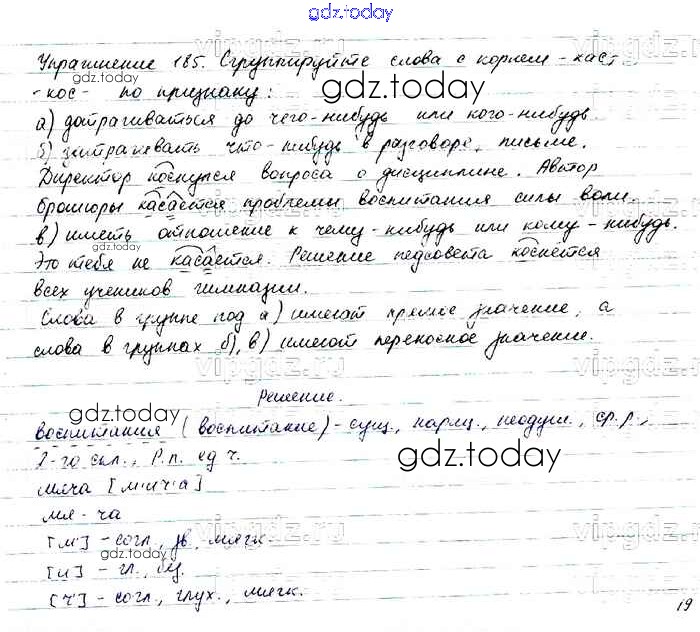 gdz.today
Упражнение 185. Сгруппируйте слова с корнем -кас-
-кос- по признаку:
а) дотрагиваться до чего-нибудь или кого-нибудь.
б) затрагивать что-нибудь в разговоре, письме.
Директор коснулся вопроса о дисциплине. Автор
брошюры касается проблемы воспитания силы воли.
в) иметь отношение к чему-нибудь или кому-нибудь.
Это тебя не касается. Решение педсовета коснётся
всех учеников гимназии.
Слова в группе под а) имеют прямое значение, а
слова в группах б), в) имеют переносное значение.
Решение.
воспитания (воспитание) - сущ., нариц., неодуш., ср.р.,
2-го скл., Р.п. ед.ч.
мяча [м'ич'а]
мя-ча
[м'] - согл., зв., мягк.
[и] - гл., бу.
[ч'] - согл., глух., мягк.
19